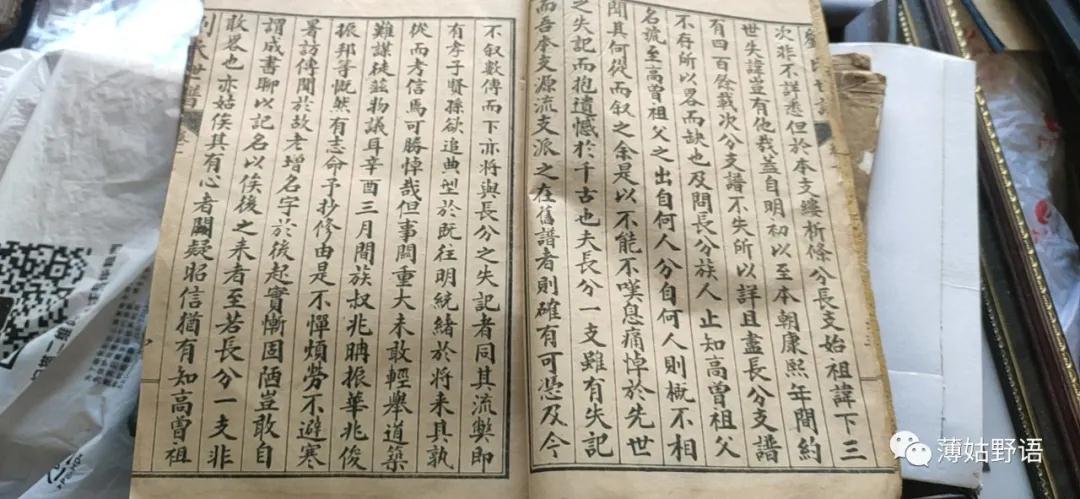 次非不詳悉但於本支縷析條分長支始祖諱下三
世失諱豈有他哉蓋自明初以至本朝康熙年間約
有四百餘載次分支譜不失所以詳且盡長分支譜
不存所以畧而缺也及問長分族人止知高曾祖父
名號至高曾祖父之出自何人分自何人則概不相
聞其何從而叙之余是以不能不嘆息痛悼於先世
之失記而抱遺憾於千古也夫長分一支雖有失記
而吾本支源流支派之在舊譜者則確有可憑及今
不叙數傳而下亦將與長分之失記者同其流獘即
有孝子賢孫欲追典型於既往明統緒於將来其孰
從而考信焉可勝悼哉但事關重大未敢輕舉道築
難謀徒兹物議耳辛酉三月間族叔兆睛振華兆俊
振邦等慨然有志命予抄修由是不憚煩勞不避寒
署訪傳聞於故老增名字於後起實慚固陋豈敢自
謂成書聊以記名以俟後之来者至若長分一支非
敢畧也亦姑俟其有心者闕疑昭信猶有知高曾祖
氏世譜
薄姑野语